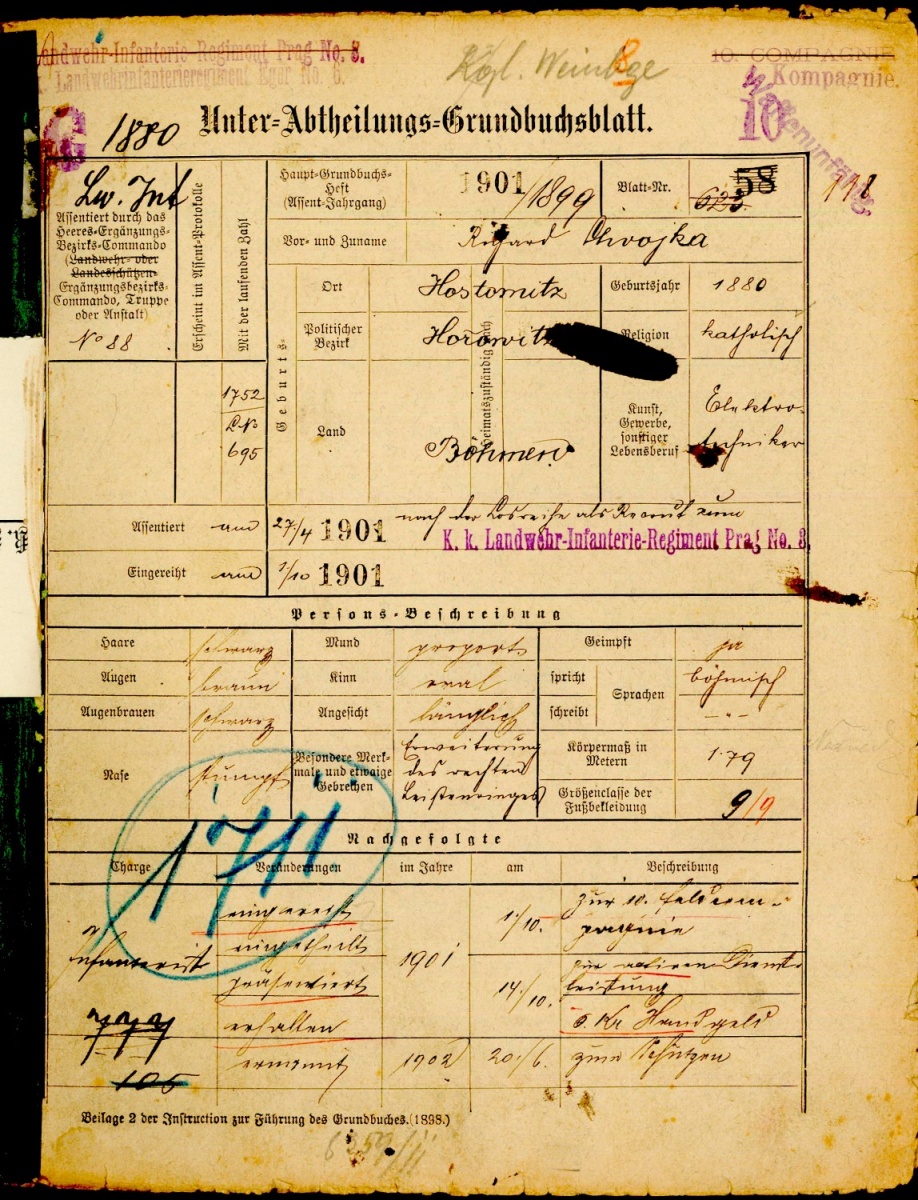 Landwehr-Infanterie-Regiment Prag No. 8.
Landwehrinfanterieregiment Eger No. 6.
Kgl. Weinbge
8
10. COMPAGNIE
Kompagnie.
10
G
1880
Unter-Abtheilungs-Grundbuchsblatt.
Lw. Inf
Assentiert durch das
Heeres-Ergänzungs-
Bezirks-Commando
(Landwehr- oder
Landesschützen-
Ergänzungsbezirks-
Commando, Truppe
oder Anstalt)
No 88
Erscheint im Assent-Protokolle
Mit der laufenden Zahl
1752
695
Haupt-Grundbuchs-
Heft
(Assent-Jahrgang)
1901
/1899
Blatt-Nr.
58
623
Vor- und Zuname
Richard Chvojka
Geburts-
Ort
Hostomitz
Geburtsjahr
1880
Politischer
Bezirk
Horowitz
Heimatszuständig nach
Religion
katholisch
Land
Böhmen
Kunst,
Gewerbe,
sonstiger
Lebensberuf
Elektro-
techniker
Assentiert am 27/4 1901 nach der Losreihe als Recrut zum
K. k. Landwehr-Infanterie-Regiment Prag No. 8.
Eingereiht am 1/10 1901
Persons-Beschreibung
Haare schwarz
Mund proport.
Geimpft ja
Augen braun
Kinn oval
spricht
Sprachen
böhmisch
Augenbrauen schwarz
Angesicht länglich
schreibt
- " -
Nase stumpf
Besondere Merk-
male und etwaige
Gebrechen
Erweiterung
des rechten
Leistenringes
Körpermaß in
Metern
1·79
Größenclasse der
Fußbekleidung
9/9
1711
Nachgefolgte
Charge Veränderungen im Jahre am Beschreibung
Infanterist
eingereiht
1901
1./10.
zur 10. Feldcom-
pagnie
eingetheilt
präsentiert
14./10.
zur activen Dienst-
leistung
erhalten
5 Kr Handgeld
777
ernannt 1902 20./6. zum Schützen
105
Beilage 2 der Instruction zur Führung des Grundbuches. (1898.)